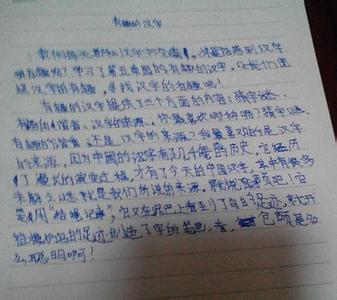 有趣的汉字
我们每天都和汉字打交道，你是否感到汉字
很有趣呢？学习了第五单园的有趣的汉字，让我们走
汉字的有趣，寻找汉字的有趣吧！
有趣的汉字提供了三个方面的内容：猜字谜、
有趣的谐音、汉字的来源。你最喜欢哪种呢？猜字谜、
有趣的谐音 还是汉字的来源？我最喜欢的是汉字
的来源。因为中国的汉字有了几千年的历史，它经历
了漫长的演变过程，才有了今天的中国汉字，其中有很多
就是我们所说的来源。 吧！它
是用“结绳记录”，它又在泥巴上看到了鸟的足迹，就
的足迹创造了字的笔画，看， 是多
么聪明啊！